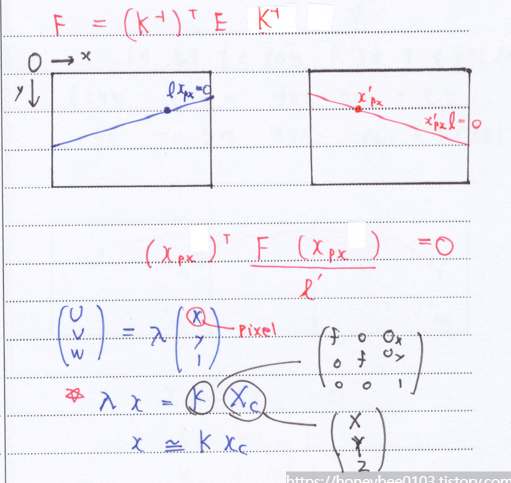 F = (K⁻¹)ᵀ E K⁻¹
O → x
y ↓
l x_px = 0
x'_px
x'_px l = 0
(x_px)ᵀ F (x_px) = 0
l'
(U V W) = λ (x y 1)
pixel
(f 0 O_x
0 f O_y
0 0 1)
☆ λ x = K X_c
(X Y Z)
x ≅ K x_c
https://honeybee0103.tistory.com